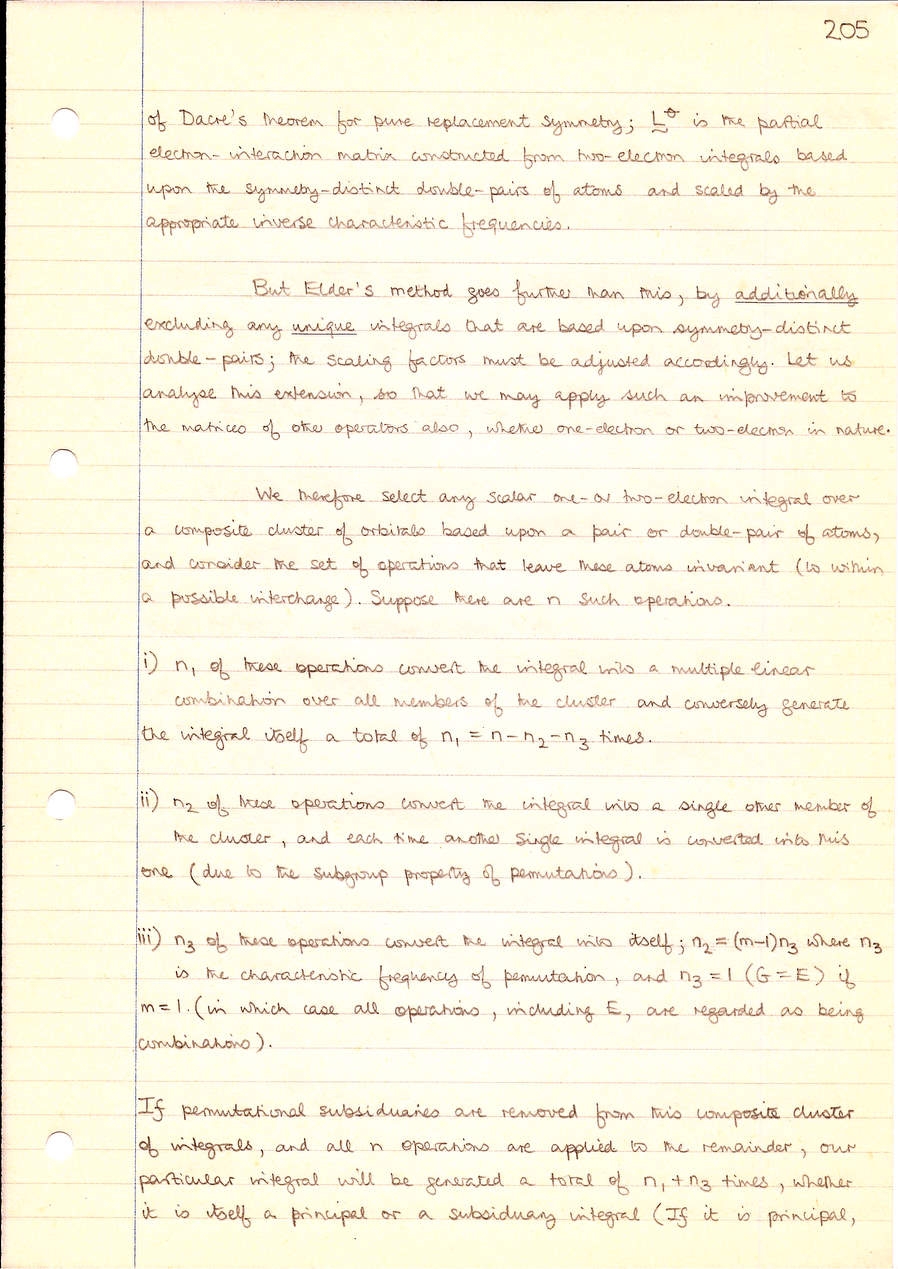 205
of Dacre's theorem for pure replacement symmetry; L^θ is the partial
electron-interaction matrix constructed from two-electron integrals based
upon the symmetry-distinct double-pairs of atoms and scaled by the
appropriate inverse characteristic frequencies.
But Elder's method goes further than this, by additionally
excluding any unique integrals that are based upon symmetry-distinct
double-pairs; the scaling factors must be adjusted accordingly. Let us
analyse this extension, so that we may apply such an improvement to
the matrices of other operators also, whether one-electron or two-electron in nature.
We therefore select any scalar one- or two-electron integral over
a composite cluster of orbitals based upon a pair or double-pair of atoms,
and consider the set of operations that leave these atoms invariant (to within
a possible interchange). Suppose there are n such operations.
i) n₁ of these operations convert the integral into a multiple linear
combination over all members of the cluster and conversely generate
the integral itself a total of n₁ = n-n₂-n₃ times.
ii) n₂ of these operations convert the integral into a single other member of
the cluster, and each time another single integral is converted into this
one (due to the subgroup property of permutations).
iii) n₃ of these operations convert the integral into itself; n₂=(m-1)n₃ where n₃
is the characteristic frequency of permutation, and n₃=1 (G=E) if
m=1. (in which case all operations, including E, are regarded as being
combinations).
If permutational subsiduaries are removed from this composite cluster
of integrals, and all n operations are applied to the remainder, our
particular integral will be generated a total of n₁+n₃ times, whether
it is itself a principal or a subsiduary integral (If it is principal,